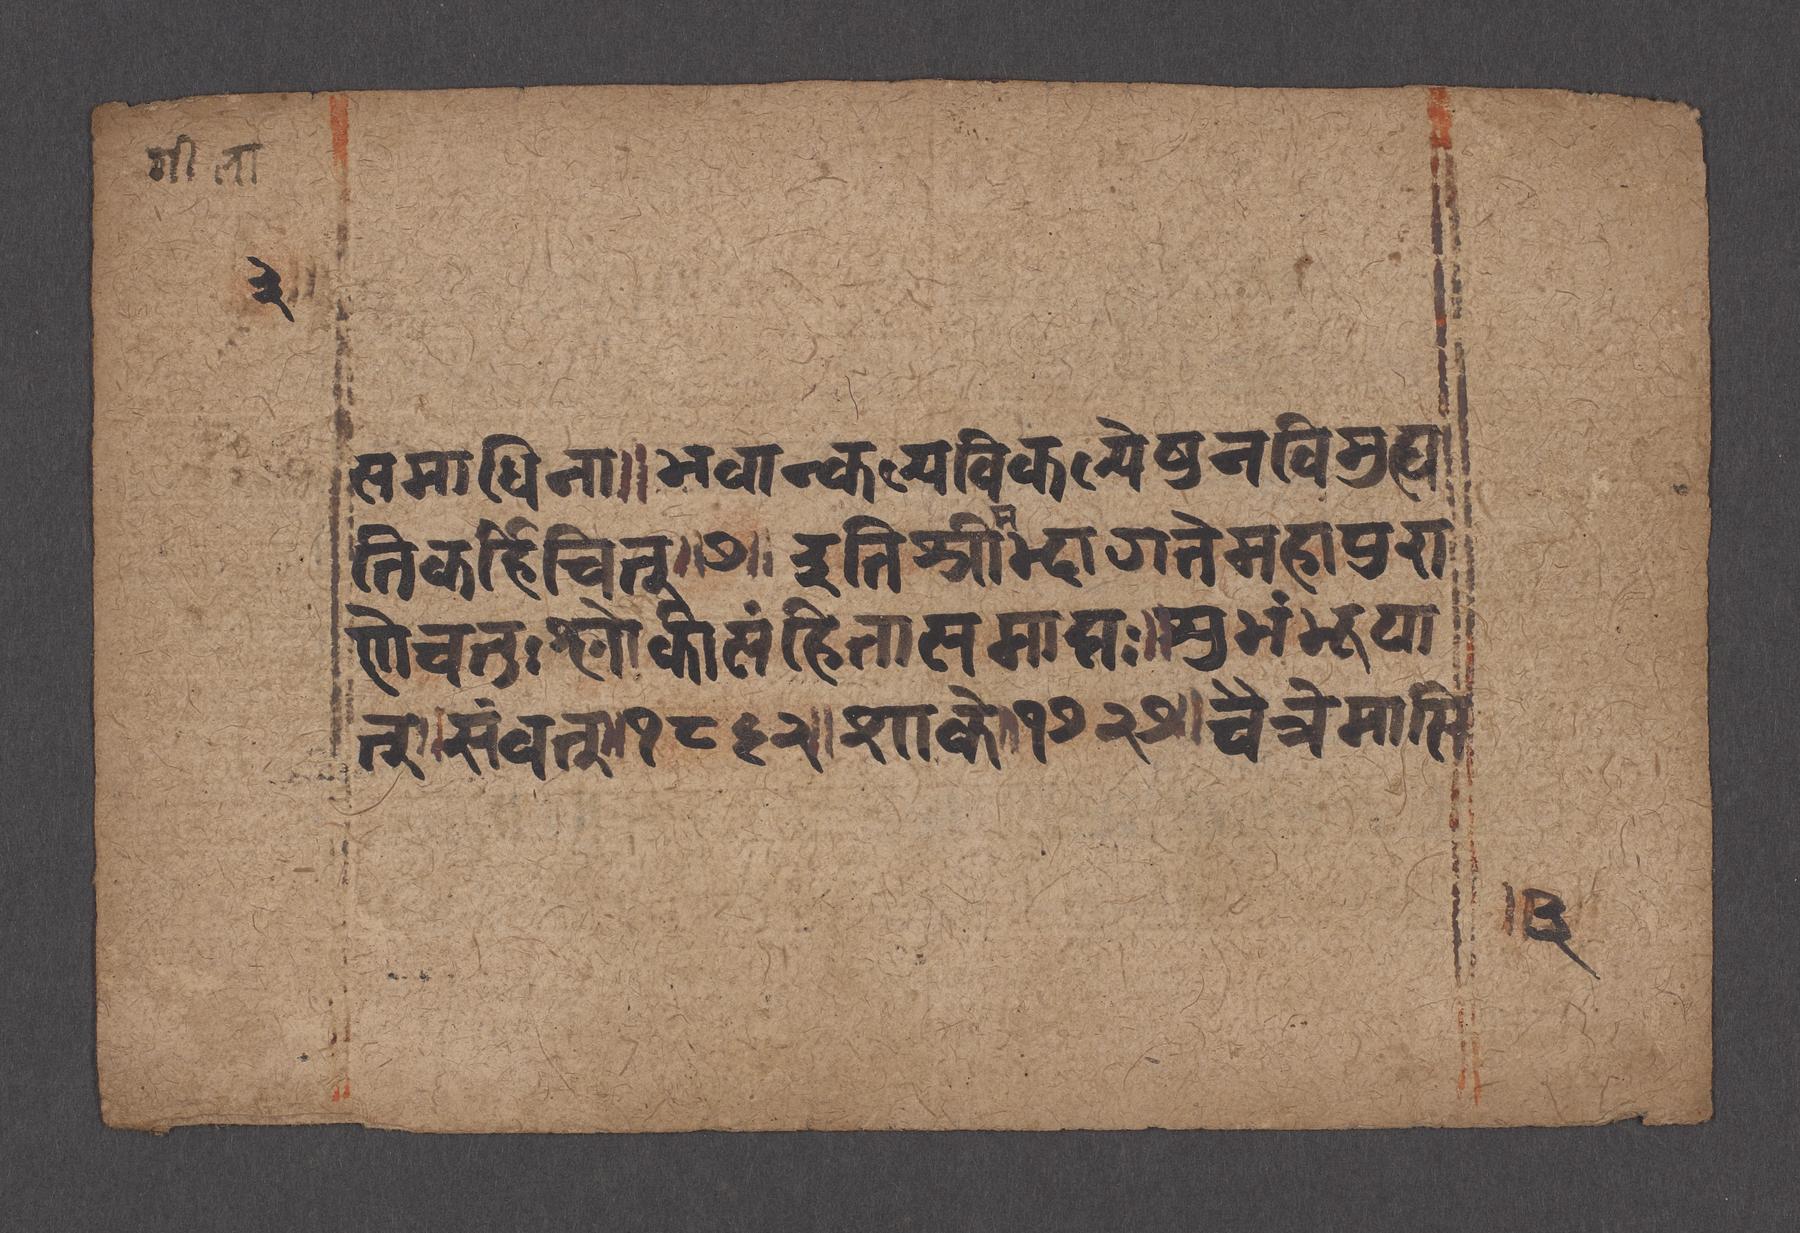 गीता
३॥
समाधिना॥भवान्कल्पविकल्पेषुनविमुह्य
तिकर्हिचित्॥७॥इतिश्रीम्द्भागतेमहापुरा
णेचतुःश्लोकीसंहितासमाप्तः॥सुभंभूया
त्॥संवत्॥१८६२॥शाके॥१७२७॥चैत्रेमासि
॥३